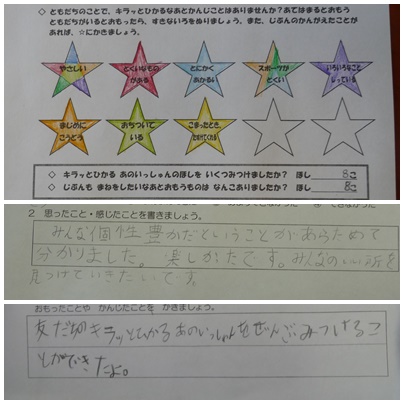 ◇ ともだちのことで、キラッとひかるなあとかんじることはありませんか？あてはまるとおもう
ともだちがいるとおもったら、すきないろをぬりましょう。また、じぶんのかんがえたことが
あれば、☆にかきましょう。
やさしい
とくいなもの
がある
とにかく
あかるい
スポーツが
とくい
いろいろなこと
しっている
まじめに
こうどう
おちついて
いる
こまったとき、
たすけてくれる
◇ キラッとひかる あのいっしゅんのほしを いくつみつけましたか？ ほし 8こ
◇ じぶんも まねをしたいなあとおもうものは なんこありましたか？ ほし 8こ
2 思ったこと・感じたことを書きましょう。
みんな個性豊かだということがあらためて
分かりました。楽しかったです。みんなのいい所を
見つけていきたいです。
おもったことや かんじたことを かきましょう。
友だちのキラッとひかるあのいっしゅんをぜんぶみつけるこ
とができたよ。